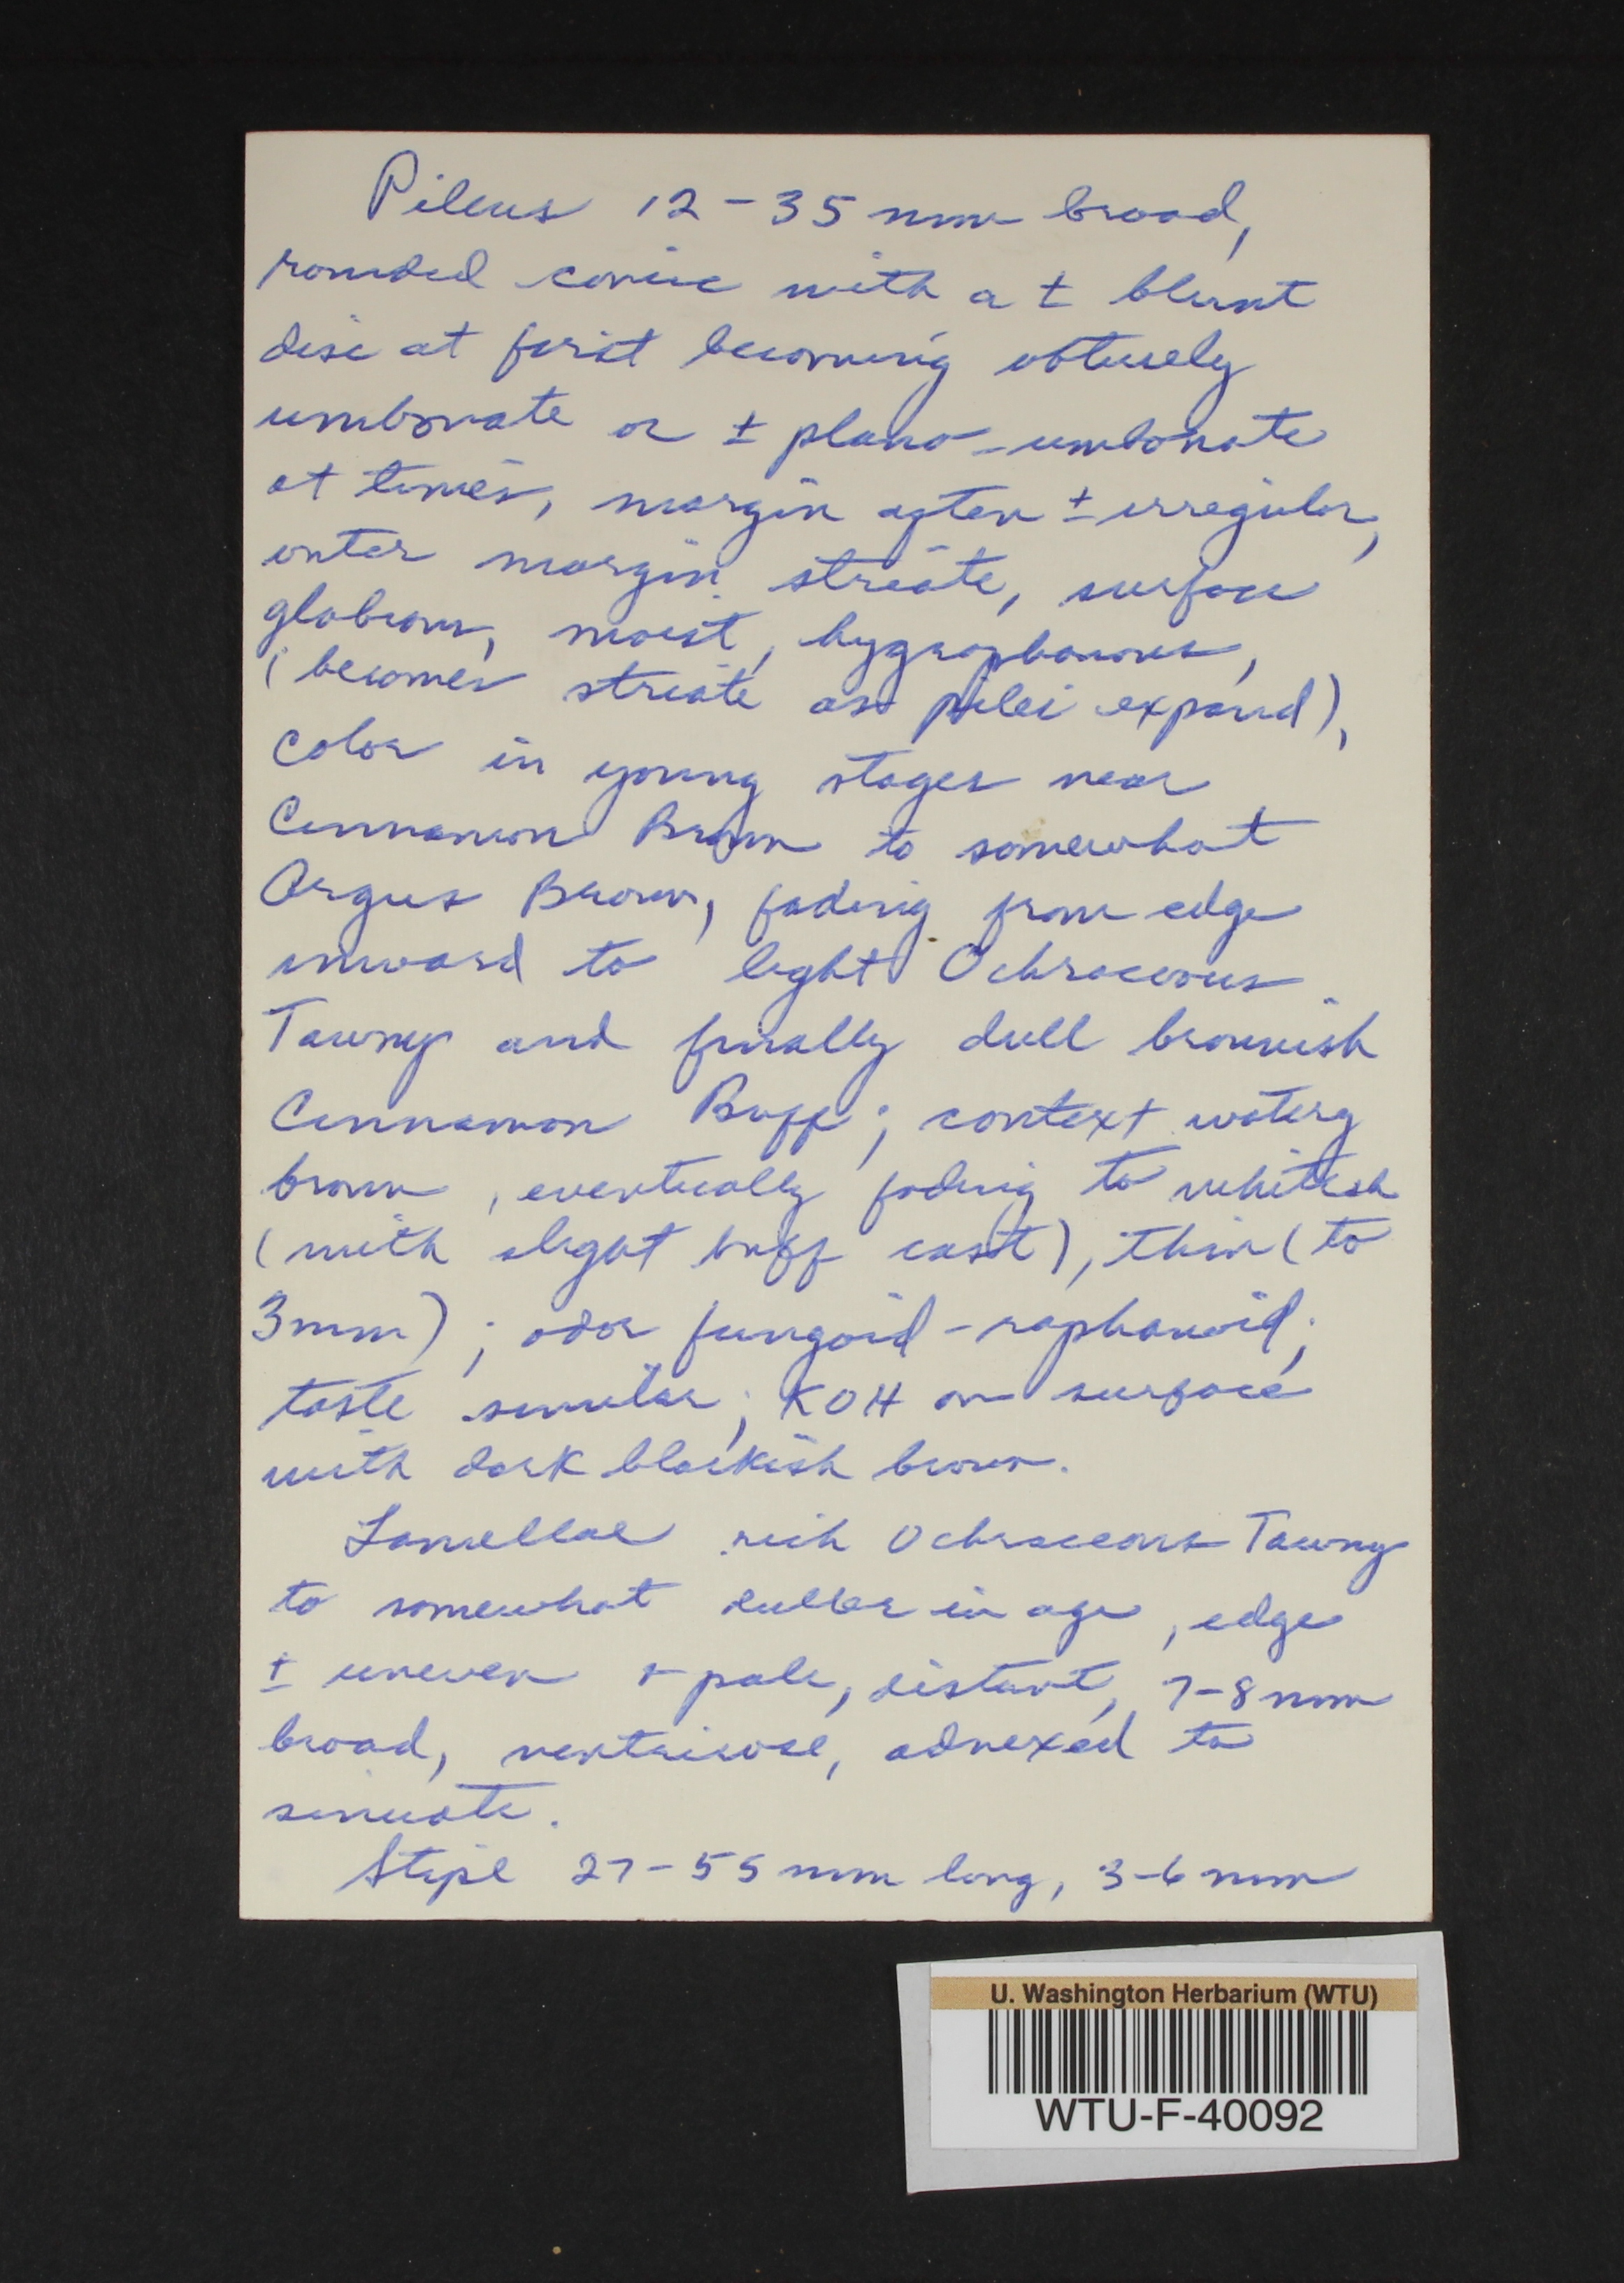 Pileus 12-35 mm broad,
rounded conic with a ± blunt
disc at first becoming obtusely
umbonate or ± plano-umbonate
at times, margin often ± irregular,
outer margin striate, surface
glabrous, moist, hygrophanous,
(becomes striate as pilei expand),
color in young stages near
Cinnamon Brown to somewhat
Argus Brown, fading from edge
inward to light Ochraceous
Tawny and finally dull brownish
Cinnamon Buff; context watery
brown, eventually fading to whitish
(with slight buff cast), thin (to
3mm); odor fungoid-raphanoid;
taste similar; KOH on surface
with dark blackish brown.
Lamellae rich Ochraceous Tawny
to somewhat duller in age, edge
± uneven & pale, distant, 7-8 mm
broad, ventricose, adnexed to
sinuate.
Stipe 27-55 mm long, 3-6 mm
U. Washington Herbarium (WTU)
WTU-F-40092